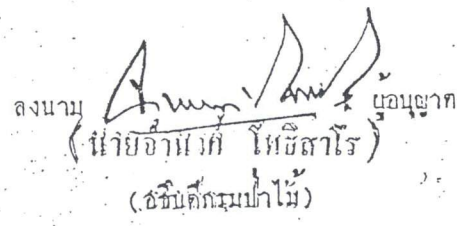 ลงนาม ผู้อนุญาต
(นายจำนงค์ โพธิสาโร)
(อธิบดีกรมป่าไม้)